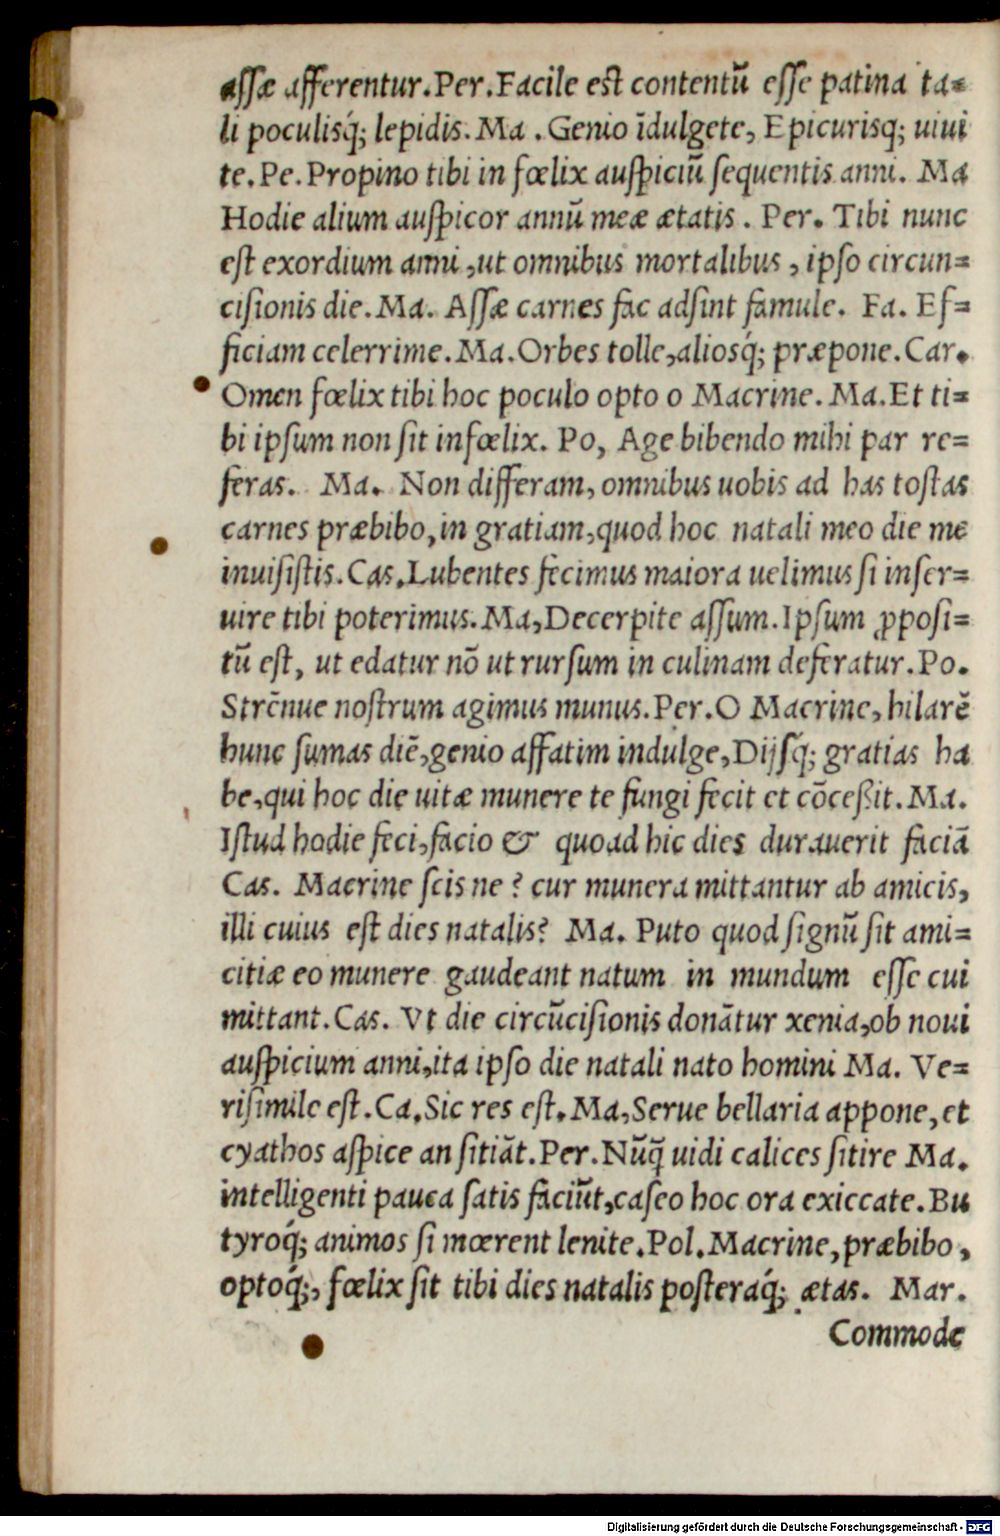 assæ afferentur. Per. Facile est contentū esse patina ta-
li poculisq́; lepidis. Ma. Genio īdulgete, Epicurisq; uiui
te. Pe. Propino tibi in fœlix auspiciū sequentis anni. Ma
Hodie alium auspicor annū meæ ætatis. Per. Tibi nunc
est exordium anni, ut omnibus mortalibus, ipso circun-
cisionis die. Ma. Assæ carnes fac adsint famule. Fa. Ef-
ficiam celerrime. Ma. Orbes tolle, aliosq́; præpone. Car.
Omen fœlix tibi hoc poculo opto o Macrine. Ma. Et ti-
bi ipsum non sit infœlix. Po, Age bibendo mihi par re-
feras. Ma. Non differam, omnibus uobis ad has tostas
carnes præbibo, in gratiam, quod hoc natali meo die me
inuisistis. Cas. Lubentes fecimus maiora uelimus si inser-
uire tibi poterimus. Ma, Decerpite assum. Ipsum ꝓposi-
tū est, ut edatur nō ut rursum in culinam deferatur. Po.
Strēnue nostrum agimus munus. Per. O Macrine, hilarē
hunc sumas diē, genio affatim indulge, Dijsq́; gratias ha
be, qui hoc die uitæ munere te fungi fecit et cōceßit. Ma.
Istud hodie feci, facio & quoad hic dies durauerit faciā
Cas. Macrine scis ne? cur munera mittantur ab amicis,
illi cuius est dies natalis? Ma. Puto quod signū sit ami-
citiæ eo munere gaudeant natum in mundum esse cui
mittant. Cas. Vt die circūcisionis donātur xenia, ob noui
auspicium anni, ita ipso die natali nato homini Ma. Ve-
risimile est. Ca. Sic res est. Ma, Serue bellaria appone, et
cyathos aspice an sitiāt. Per. Nūq̄ uidi calices sitire Ma.
intelligenti pauca satis faciūt, caseo hoc ora exiccate. Bu
tyroq́; animos si mœrent lenite. Pol. Macrine, præbibo,
optoq́;, fœlix sit tibi dies natalis posteraq́; ætas. Mar.
Commode
Digitalisierung gefördert durch die Deutsche Forschungsgemeinschaft - DFG